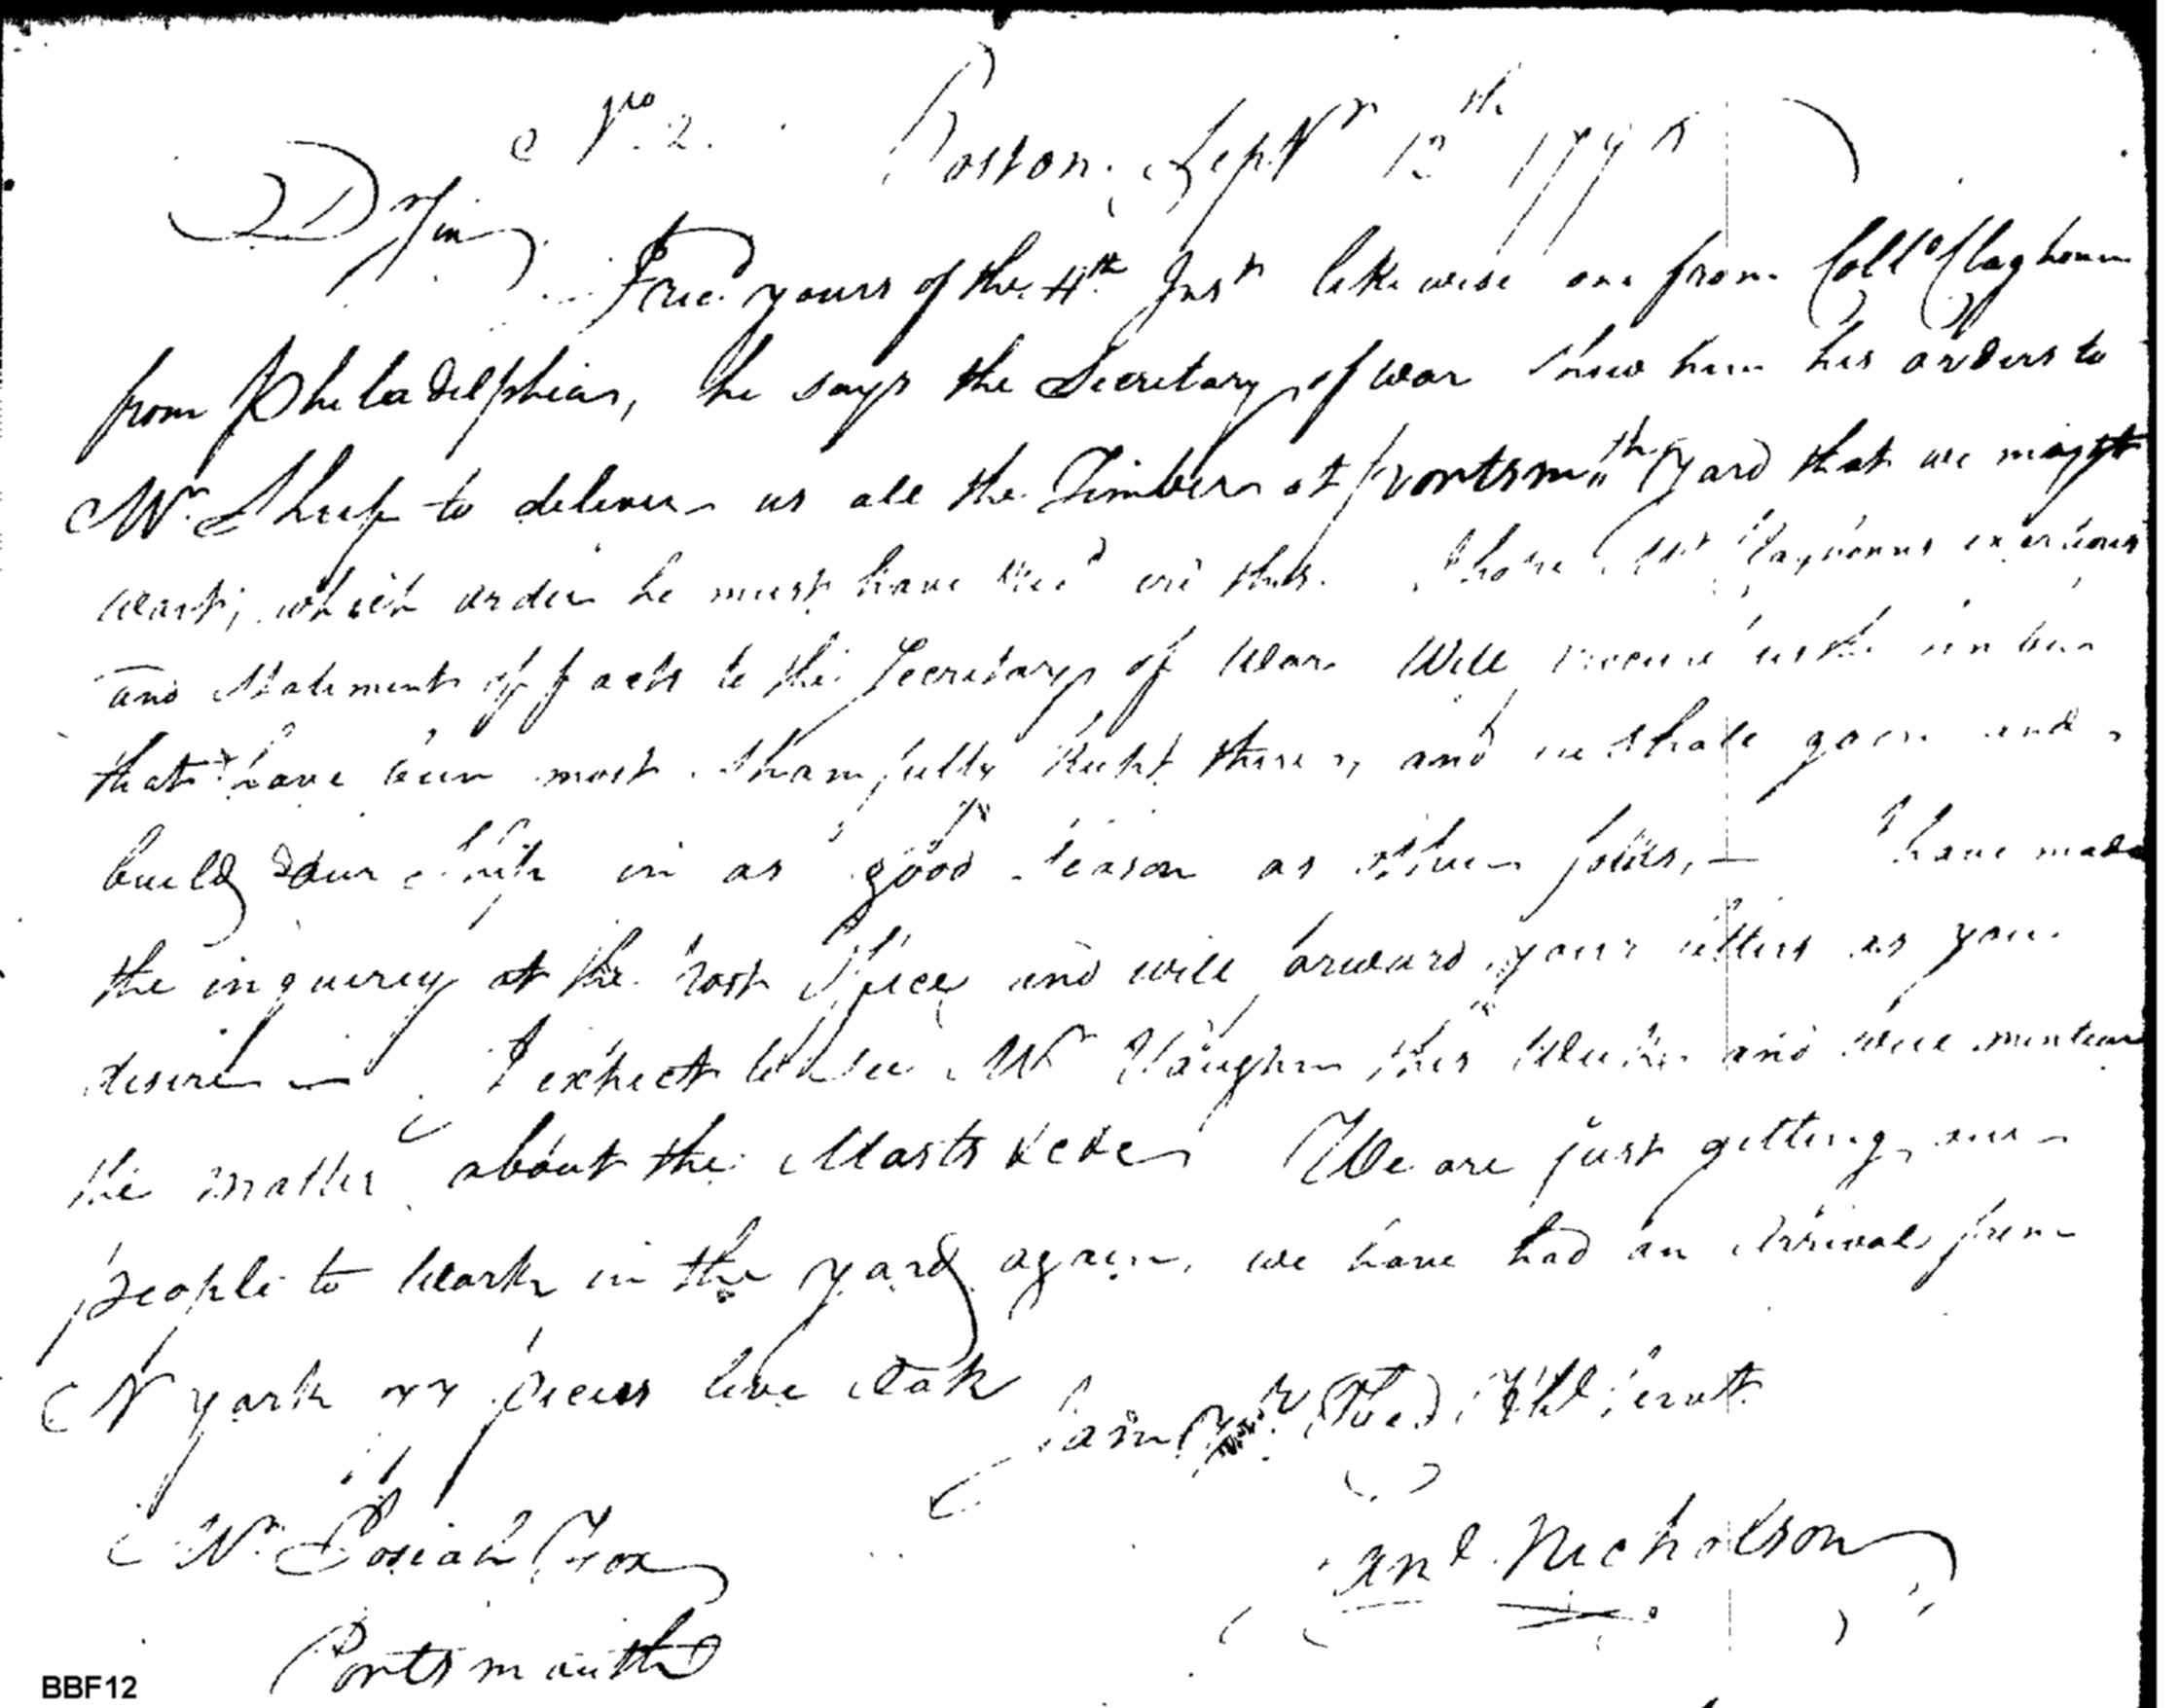 No. 2. Boston Septr 12th 179
Dr Sir
I recd yours of the 4th Inst likewise one from Collo Claghorn
from Philadelphia, he says the Secretary of war shew him his orders to
Mr Sheaf to deliver us all the Timber at Portsmth Yard that we might
want, which order he must have recd ere this. I hope Collo Claghorns exertions
and Statement of facts to the Secretary of War Will procure us the timber
that have been most shamfully kept there, and we shall goon and
build our ship in as good season as other folks, — I have made
the inquirey at the post Office and will forward your letters as you
desire — I expect to see Mr Vaughn this Week and will mention
the matter about the Masts &c&c We are just getting our
people to Work in the yard again, we have had an Arrival from
N york 77 pieces live Oak
I am Yor Obd Hble Servt
Mr Josiah Fox
Saml Nicholson
Portsmouth
BBF12